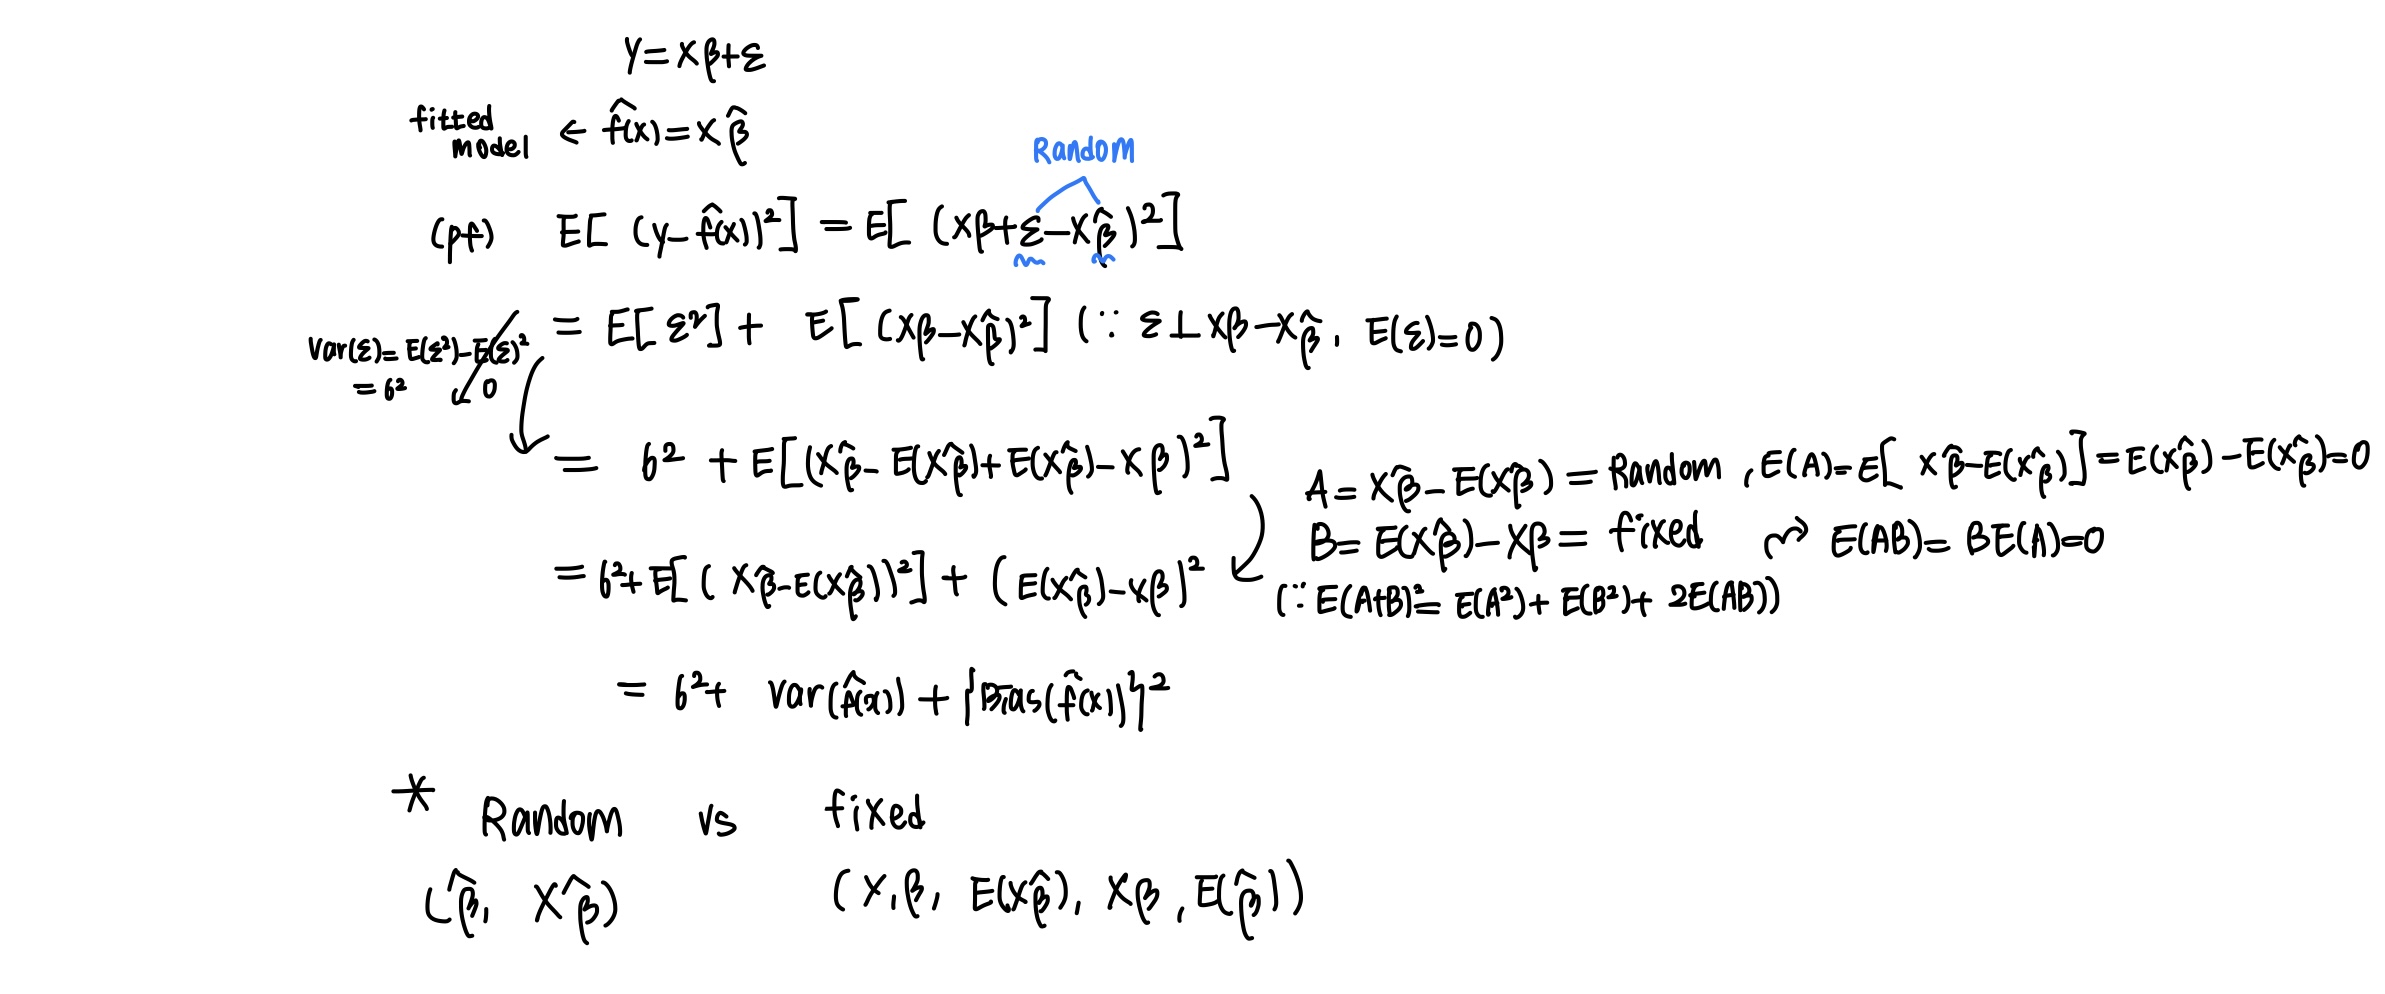 Y=Xβ+ε
fitted model ← f̂(x)=Xβ̂
Random
(pf) E[(y-f̂(x))²] = E[(Xβ+ε-Xβ̂)²]
= E[ε²] + E[(Xβ-Xβ̂)²] (∵ ε⊥Xβ-Xβ̂, E(ε)=0)
Var(ε)=E(ε²)-E(ε)²
=6² 0
= 6² + E[(Xβ̂-E(Xβ̂)+E(Xβ̂)-Xβ)²]
A=Xβ̂-E(Xβ̂)=Random, E(A)=E[Xβ̂-E(Xβ̂)]=E(Xβ̂)-E(Xβ̂)=0
B=E(Xβ̂)-Xβ=fixed ↝ E(AB)=BE(A)=0
= 6²+E[(Xβ̂-E(Xβ̂))²]+(E(Xβ̂)-Xβ)²
(∵ E(A+B)²=E(A²)+E(B²)+2E(AB))
= 6²+ var(f̂(x))+{Bias(f̂(x))}²
* Random vs fixed
(β̂, Xβ̂) (X,β, E(Xβ̂), Xβ, E(β̂))